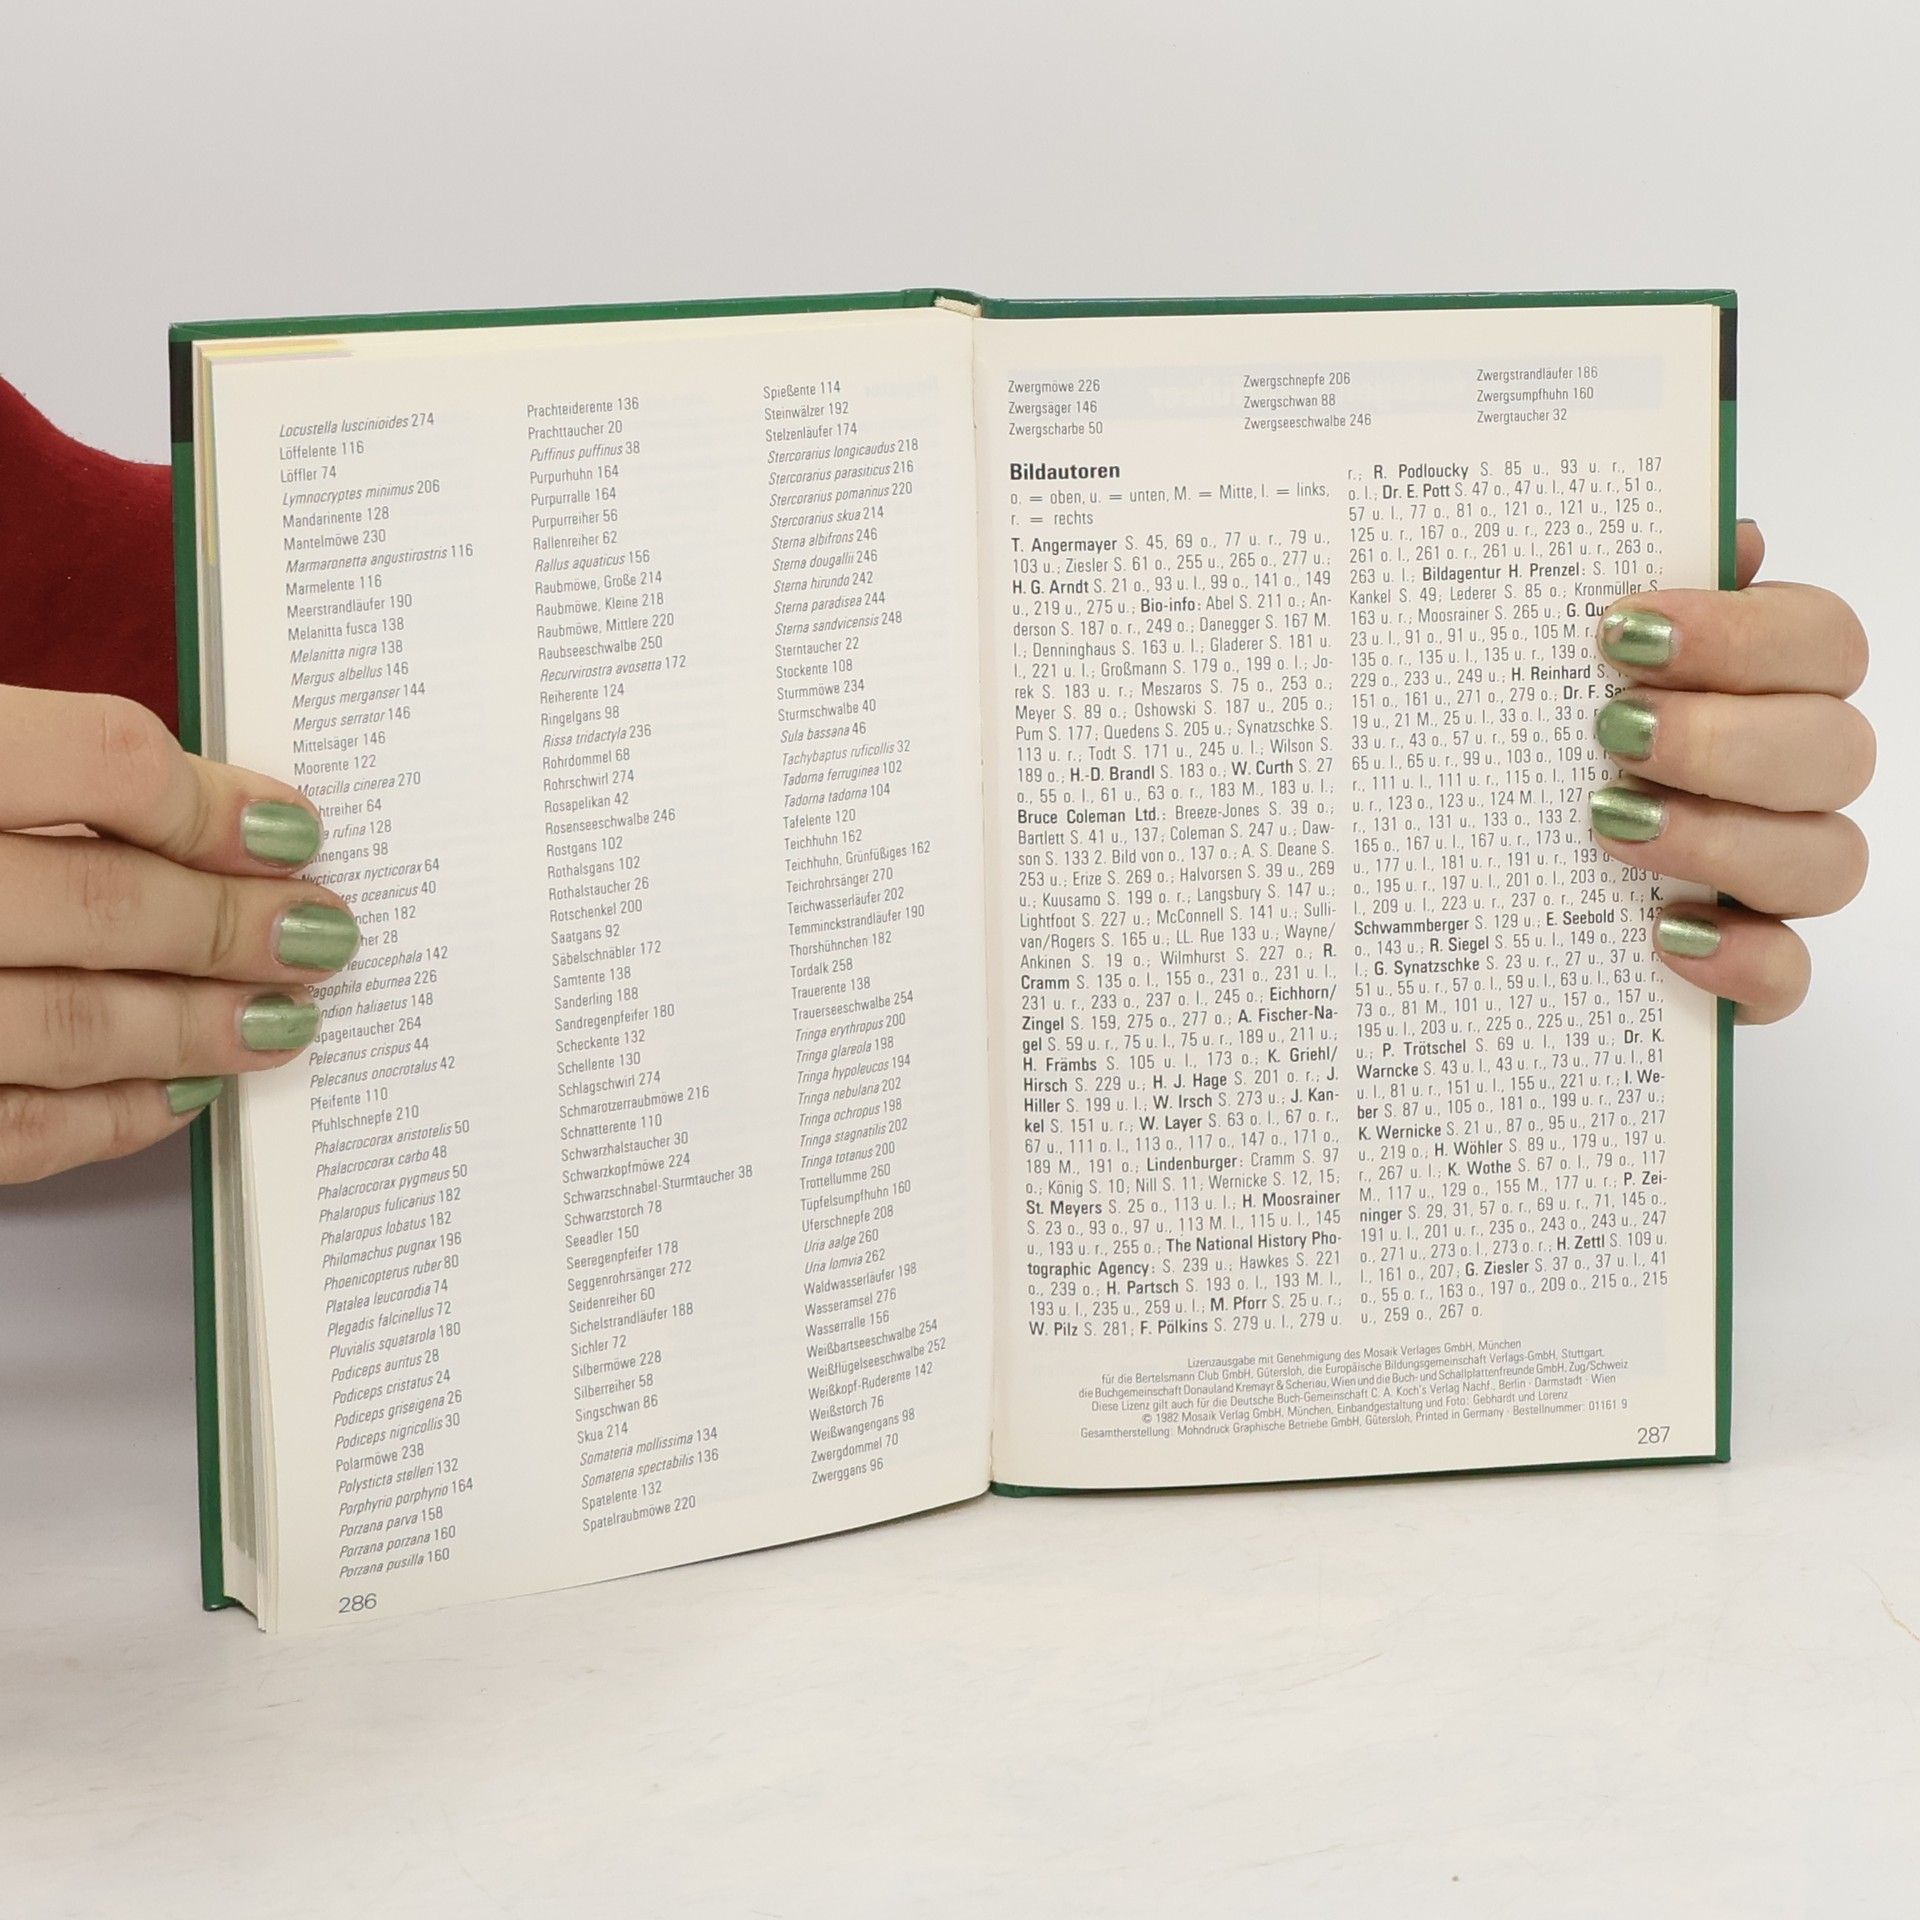 Locustella luscinioides 274
Löffelente 116
Löffler 74
Lymnocryptes minimus 206
Mandarinente 128
Mantelmöwe 230
Marmaronetta angustirostris 116
Marmelente 116
Meerstrandläufer 190
Melanitta fusca 138
Melanitta nigra 138
Mergus albellus 146
Mergus merganser 144
Mergus serrator 146
Mittelsäger 146
Moorente 122
Motacilla cinerea 270
64
rufina 128
98
Nycticorax nycticorax 64
oceanicus 40
182
28
leucocephala 142
Pagophila eburnea 226
haliaetus 148
264
Pelecanus crispus 44
Pelecanus onocrotalus 42
Pfeifente 110
Pfuhlschnepfe 210
Phalacrocorax aristotelis 50
Phalacrocorax carbo 48
Phalacrocorax pygmeus 50
Phalaropus fulicarius 182
Phalaropus lobatus 182
Philomachus pugnax 196
Phoenicopterus ruber 80
Platalea leucorodia 74
Plegadis falcinellus 72
Pluvialis squatarola 180
Podiceps auritus 28
Podiceps cristatus 24
Podiceps griseigena 26
Podiceps nigricollis 30
Polarmöwe 238
Polysticta stelleri 132
Porphyrio porphyrio 164
Porzana parva 158
Porzana porzana 160
Porzana pusilla 160
Prachteiderente 136
Prachttaucher 20
Puffinus puffinus 38
Purpurhuhn 164
Purpurralle 164
Purpurreiher 56
Rallenreiher 62
Rallus aquaticus 156
Raubmöwe, Große 214
Raubmöwe, Kleine 218
Raubmöwe, Mittlere 220
Raubseeschwalbe 250
Recurvirostra avosetta 172
Reiherente 124
Ringelgans 98
Rissa tridactyla 236
Rohrdommel 68
Rohrschwirl 274
Rosapelikan 42
Rosenseeschwalbe 246
Rostgans 102
Rothalsgans 102
Rothalstaucher 26
Rotschenkel 200
Saatgans 92
Säbelschnäbler 172
Samtente 138
Sanderling 188
Sandregenpfeifer 180
Scheckente 132
Schellente 130
Schlagschwirl 274
Schmarotzerraubmöwe 216
Schnatterente 110
Schwarzhalstaucher 30
Schwarzkopfmöwe 224
Schwarzschnabel-Sturmtaucher 38
Schwarzstorch 78
Seeadler 150
Seeregenpfeifer 178
Seggenrohrsänger 272
Seidenreiher 60
Sichelstrandläufer 188
Sichler 72
Silbermöwe 228
Silberreiher 58
Singschwan 86
Skua 214
Somateria mollissima 134
Somateria spectabilis 136
Spatelente 132
Spatelraubmöwe 220
Spießente 114
Steinwälzer 192
Stelzenläufer 174
Stercorarius longicaudus 218
Stercorarius parasiticus 216
Stercorarius pomarinus 220
Stercorarius skua 214
Sterna albifrons 246
Sterna dougallii 246
Sterna hirundo 242
Sterna paradisea 244
Sterna sandvicensis 248
Sterntaucher 22
Stockente 108
Sturmmöwe 234
Sturmschwalbe 40
Sula bassana 46
Tachybaptus ruficollis 32
Tadorna ferruginea 102
Tadorna tadorna 104
Tafelente 120
Teichhuhn 162
Teichhuhn, Grünfüßiges 162
Teichrohrsänger 270
Teichwasserläufer 202
Temminckstrandläufer 190
Thorshühnchen 182
Tordalk 258
Trauerente 138
Trauerseeschwalbe 254
Tringa erythropus 200
Tringa glareola 198
Tringa hypoleucos 194
Tringa nebularia 202
Tringa ochropus 198
Tringa stagnatilis 202
Tringa totanus 200
Trottellumme 260
Tüpfelsumpfhuhn 160
Uferschnepfe 208
Uria aalge 260
Uria lomvia 262
Waldwasserläufer 198
Wasseramsel 276
Wasserralle 156
Weißbartseeschwalbe 254
Weißflügelseeschwalbe 252
Weißkopf-Ruderente 142
Weißstorch 76
Weißwangengans 98
Zwergdommel 70
Zwerggans 96
286
Zwergmöwe 226
Zwergsäger 146
Zwergscharbe 50
Zwergschnepfe 206
Zwergschwan 88
Zwergseeschwalbe 246
Zwergstrandläufer 186
Zwergsumpfhuhn 160
Zwergtaucher 32
Bildautoren
o. = oben, u. = unten, M. = Mitte, l. = links,
r. = rechts
T. Angermayer S. 45, 69 o., 77 u. r., 79 u.,
103 u.; Ziesler S. 61 o., 255 u., 265 o., 277 u.;
H. G. Arndt S. 21 o., 93 u. l., 99 o., 141 o., 149
u., 219 u., 275 u.; Bio-info: Abel S. 211 o.; An-
derson S. 187 o. r., 249 o.; Danegger S. 167 M.
l.; Denninghaus S. 163 u. l.; Gladerer S. 181 u.
l., 221 u. l.; Großmann S. 179 o., 199 o. l.; Jo-
rek S. 183 u. r.; Meszaros S. 75 o., 253 o.;
Meyer S. 89 o.; Oshowski S. 187 u., 205 o.;
Pum S. 177; Quedens S. 205 u.; Synatzschke S.
113 u. r.; Todt S. 171 u., 245 u. l.; Wilson S.
189 o.; H.-D. Brandl S. 183 o.; W. Curth S. 27
o., 55 o. l., 61 u., 63 o. r., 183 M., 183 u. l.;
Bruce Coleman Ltd.: Breeze-Jones S. 39 o.;
Bartlett S. 41 u., 137; Coleman S. 247 u.; Daw-
son S. 133 2. Bild von o., 137 o.; A. S. Deane S.
253 u.; Erize S. 269 o.; Halvorsen S. 39 u., 269
u.; Kuusamo S. 199 o. r.; Langsbury S. 147 u.;
Lightfoot S. 227 u.; McConnell S. 141 u.; Sulli-
van/Rogers S. 165 u.; LL. Rue 133 u.; Wayne/
Ankinen S. 19 o.; Wilmhurst S. 227 o.; R.
Cramm S. 135 o. l., 155 o., 231 o., 231 u. l.,
231 u. r., 233 o., 237 o. l., 245 o.; Eichhorn/
Zingel S. 159, 275 o., 277 o.; A. Fischer-Na-
gel S. 59 u. r., 75 u. l., 75 u. r., 189 u., 211 u.;
H. Främbs S. 105 u. l., 173 o.; K. Griehl/
Hirsch S. 229 u.; H. J. Hage S. 201 o. r.; J.
Hiller S. 199 u. l.; W. Irsch S. 273 u.; J. Kan-
kel S. 151 u. r.; W. Layer S. 63 o. l., 67 o. r.,
67 u., 111 o. l., 113 o., 117 o., 147 o., 171 o.,
189 M., 191 o.; Lindenburger: Cramm S. 97
o.; König S. 10; Nill S. 11; Wernicke S. 12, 15;
St. Meyers S. 25 o., 113 u. l.; H. Moosrainer
S. 23 o., 93 o., 97 u., 113 M. l., 115 u. l., 145
u., 193 u. r., 255 o.; The National History Pho-
tographic Agency: S. 239 u.; Hawkes S. 221
o., 239 o.; H. Partsch S. 193 o. l., 193 M. l.,
193 u. l., 235 u., 259 u. l.; M. Pforr S. 25 u. r.;
W. Pilz S. 281; F. Pölkins S. 279 u. l., 279 u.
r.; R. Podloucky S. 85 u., 93 u. r., 187
o. l.; Dr. E. Pott S. 47 o., 47 u. l., 47 u. r., 51 o.,
57 u. l., 77 o., 81 o., 121 o., 121 u., 125 o.,
125 u. r., 167 o., 209 u. r., 223 o., 259 u. r.,
261 o. l., 261 o. r., 261 u. l., 261 u. r., 263 o.,
263 u. l.; Bildagentur H. Prenzel: S. 101 o.;
Kankel S. 49; Lederer S. 85 o.; Kronmüller S.
163 u. r.; Moosrainer S. 265 u.; G.
23 u. l., 91 o., 91 u., 95 o., 105 M. r.,
135 o. r., 135 u. l., 135 u. r., 139 o.,
229 o., 233 u., 249 u.; H. Reinhard S.
151 o., 161 u., 271 o., 279 o.; Dr. F.
19 u., 21 M., 25 u. l., 33 o. l., 33 o.
33 u. r., 43 o., 57 u. r., 59 o., 65 o.
65 u. l., 65 u. r., 99 u., 103 o., 109 u.
r., 111 u. l., 111 u. r., 115 o. l., 115 o.
u. r., 123 o., 123 u., 124 M. l., 127
r., 131 o., 131 u., 133 o., 133 2.
165 o., 167 u. l., 167 u. r., 173 u.,
u., 177 u. l., 181 u. r., 191 u. r., 193
o., 195 u. r., 197 u. l., 201 o. l., 203 o., 203 u.
l., 209 u. l., 223 u. r., 237 o. r., 245 u. r.; K.
Schwammberger S. 129 u.; E. Seebold S. 143
o., 143 u.; R. Siegel S. 55 u. l., 149 o., 223
l.; G. Synatzschke S. 23 u. r., 27 u., 37 u. r.,
51 u., 55 u. r., 57 o. l., 59 u. l., 63 u. l., 63 u. r.,
73 o., 81 M., 101 u., 127 u., 157 o., 157 u.,
195 u. l., 203 u. r., 225 o., 225 u., 251 o., 251
u.; P. Trötschel S. 69 u. l., 139 u.; Dr. K.
Warncke S. 43 u. l., 43 u. r., 73 u., 77 u. l., 81
u. l., 81 u. r., 151 u. l., 155 u., 221 u. r.; I. We-
ber S. 87 u., 105 o., 181 o., 199 u. r., 237 u.;
K. Wernicke S. 21 u., 87 o., 95 u., 217 o., 217
u., 219 o.; H. Wöhler S. 89 u., 179 u., 197 u.
r., 267 u. l.; K. Wothe S. 67 o. l., 79 o., 117
M., 117 u., 129 o., 155 M., 177 u. r.; P. Zei-
ninger S. 29, 31, 57 o. r., 69 u. r., 71, 145 o.,
191 u. l., 201 u. r., 235 o., 243 o., 243 u., 247
o., 271 u., 273 o. l., 273 o. r.; H. Zettl S. 109 u.
l., 161 o., 207; G. Ziesler S. 37 o., 37 u. l., 41
o., 55 o. r., 163 o., 197 o., 209 o., 215 o., 215
u., 259 o., 267 o.
Lizenzausgabe mit Genehmigung des Mosaik Verlages GmbH, München
für die Bertelsmann Club GmbH, Gütersloh, die Europäische Bildungsgemeinschaft Verlags-GmbH, Stuttgart,
die Buchgemeinschaft Donauland Kremayr & Scheriau, Wien und die Buch- und Schallplattenfreunde GmbH, Zug/Schweiz
Diese Lizenz gilt auch für die Deutsche Buch-Gemeinschaft C. A. Koch's Verlag Nachf., Berlin · Darmstadt · Wien
© 1982 Mosaik Verlag GmbH, München, Einbandgestaltung und Foto: Gebhardt und Lorenz
Gesamtherstellung: Mohndruck Graphische Betriebe GmbH, Gütersloh, Printed in Germany · Bestellnummer: 01161 9
287